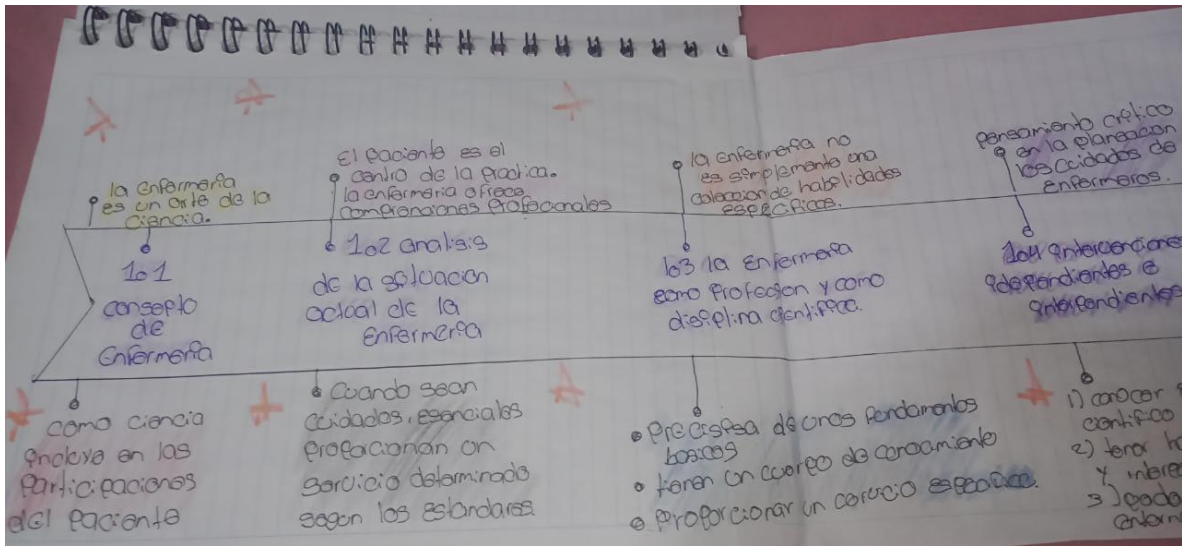 la enfermería
es un arte de la
ciencia.
El paciente es el
centro de la practica.
la enfermeria ofrece
comprenciones Profecionales
la enfermería no
es simplemente una
coleccion de habilidades
especificas.
pensamiento critico
en la planeacion
los cuidados de
enfermeros.
1.1
consepto
de
Enfermería
1.2 analisis
de la situacion
actual de la
Enfermería
1.3 la Enfermera
como Profecion y como
disiplina cientifica.
1.4 intervencione
idependientes e
interpendientes
como ciencia
incluye en las
Participaciones
del paciente
Cuando sean
cuidados, esenciales
propocionan un
servicio determinado
segun los estandares.
Precisesa de unos fundamentos
basicos
tienen un cuerpo de conocamiento
proporcionar un
1) conocer
cientifico
2) tener
y intere
3)